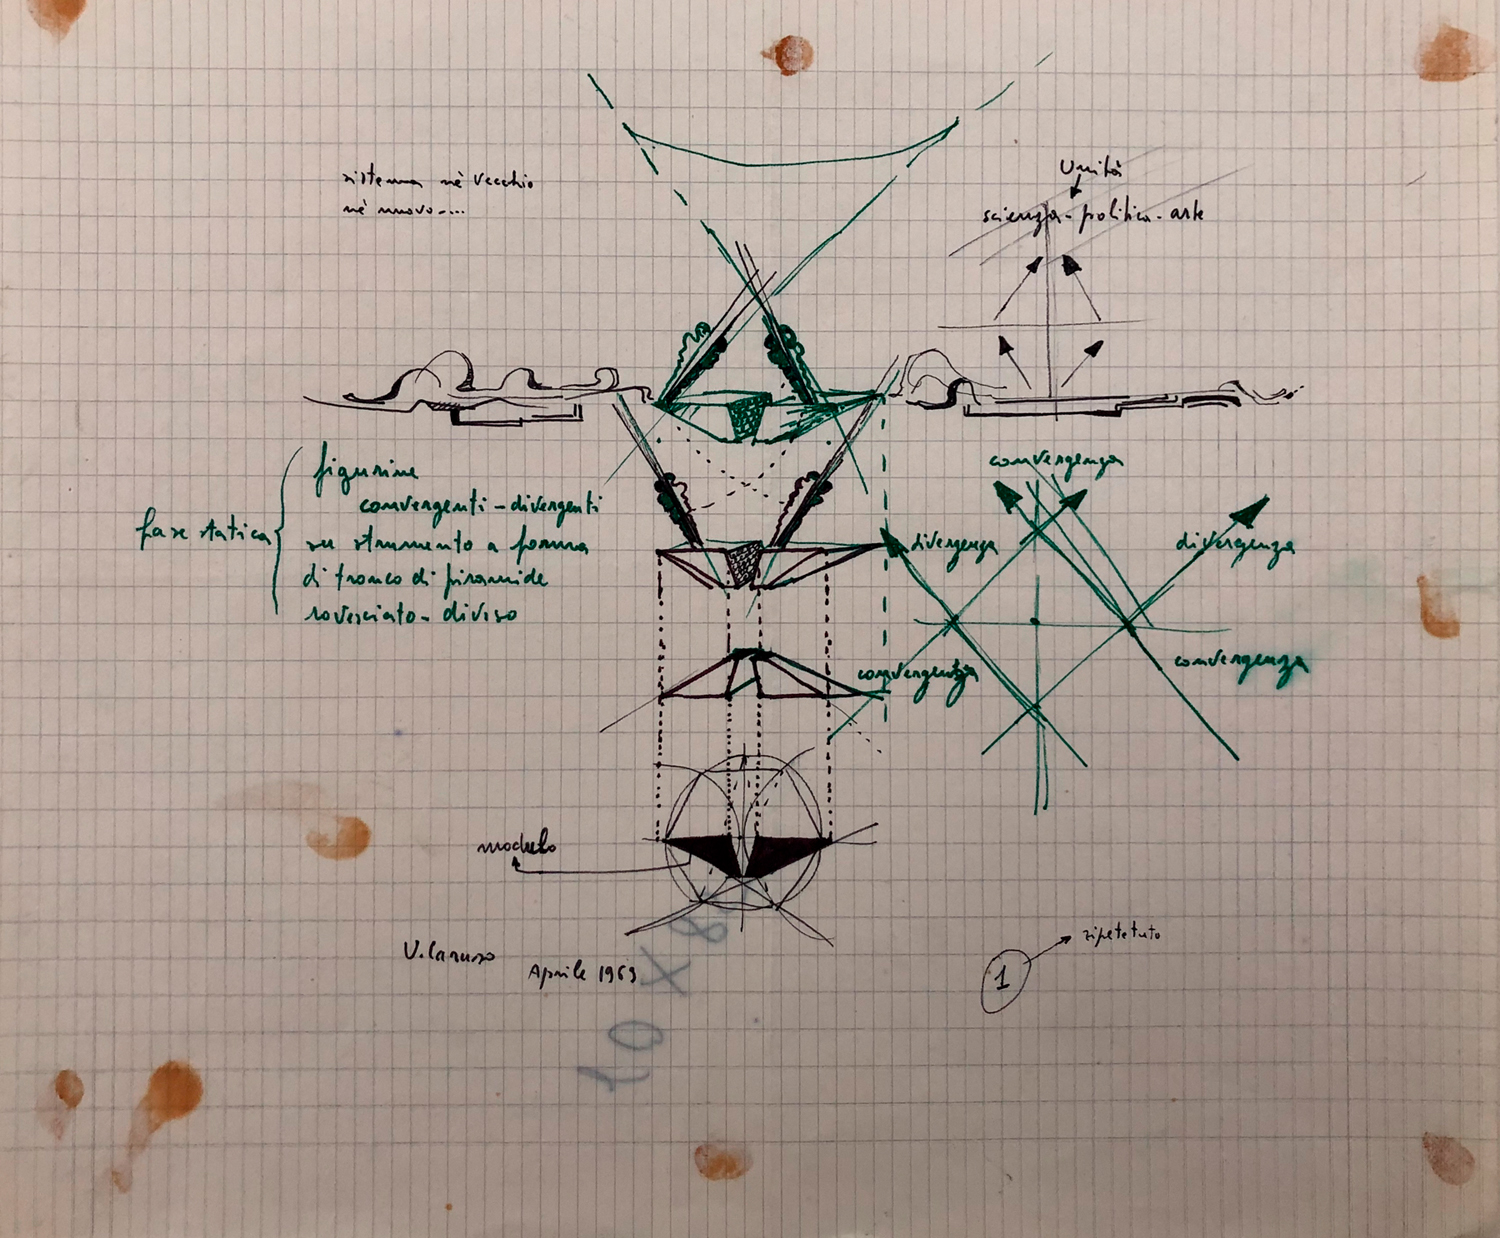 sistema nè vecchio
nè nuovo....
Unità
scienza-politica-arte
fase statica
figurine
convergenti-divergenti
su strumento a forma
di tronco di piramide
rovesciato-diviso
convergenza
divergenza
divergenza
convergenza
convergenza
modulo
V. Caruso
Aprile 1969
1
ripetetuto
10 x 8